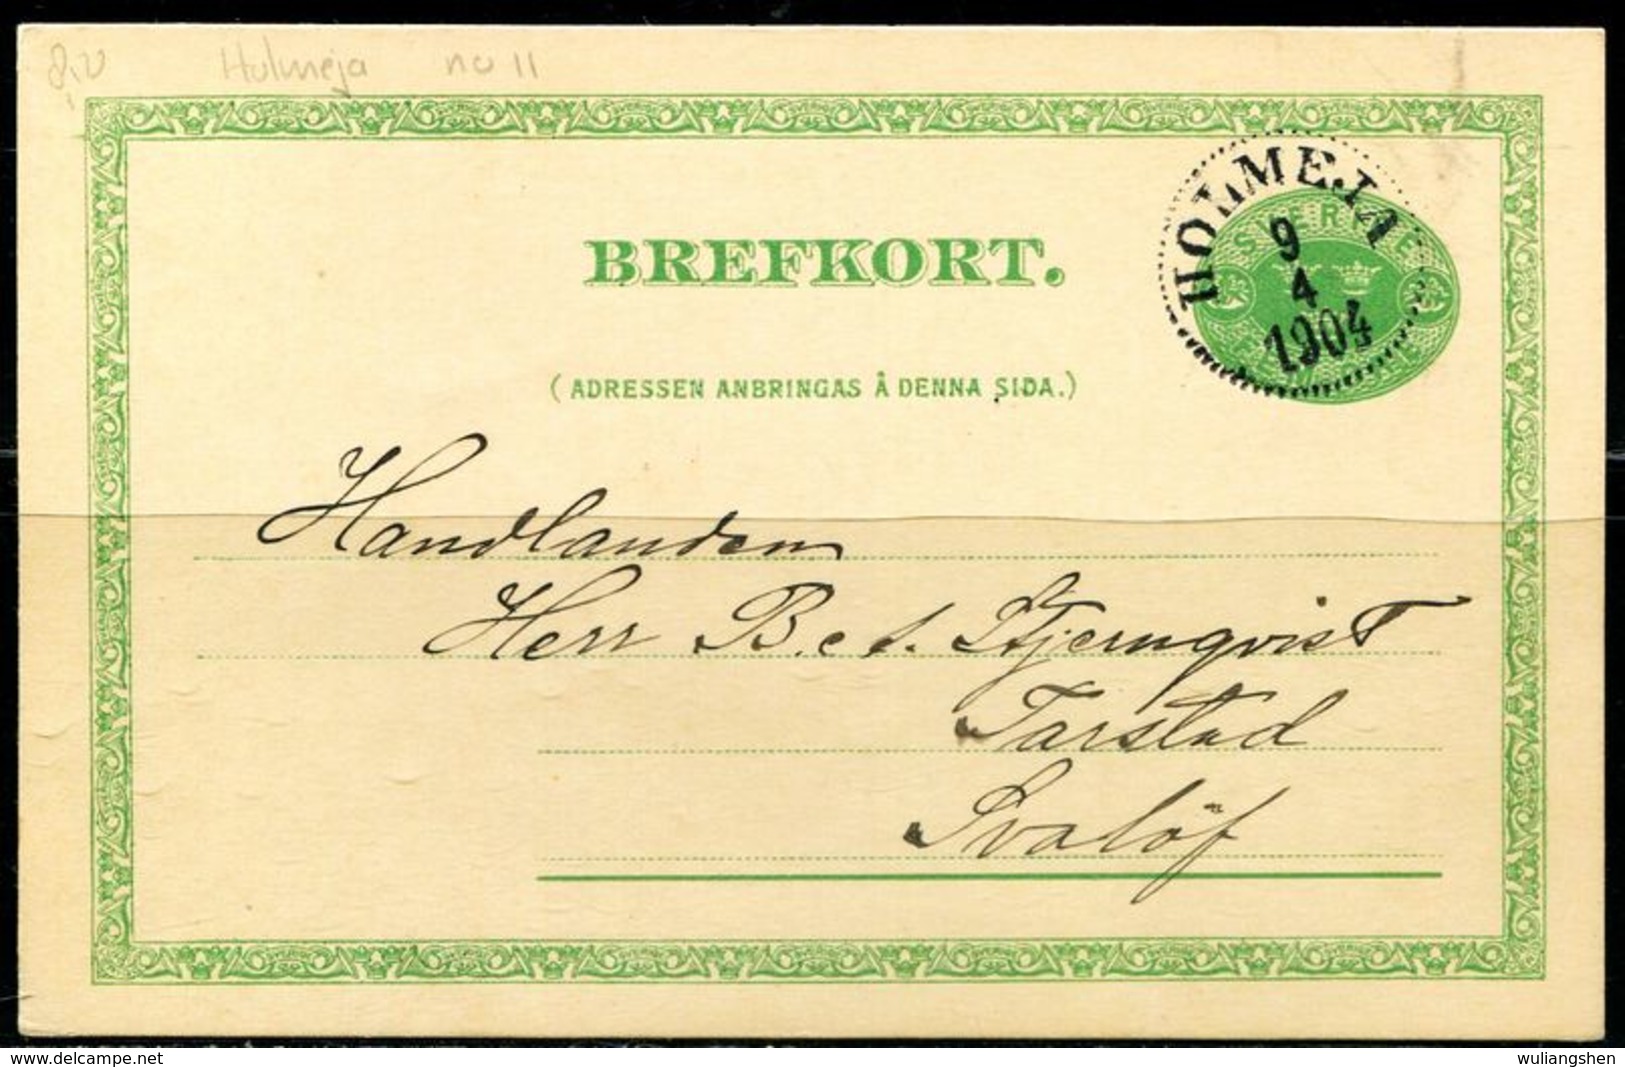 8,0
Holmeja no 11
HOLMEJA
9
4
1904
SVERIGE
BREFKORT.
(ADRESSEN ANBRINGAS Å DENNA SIDA.)
Handlanden
Herr B. et. Stjernqvist
Tarstad
Svalöf
www.delcampe.net
wuliangshen